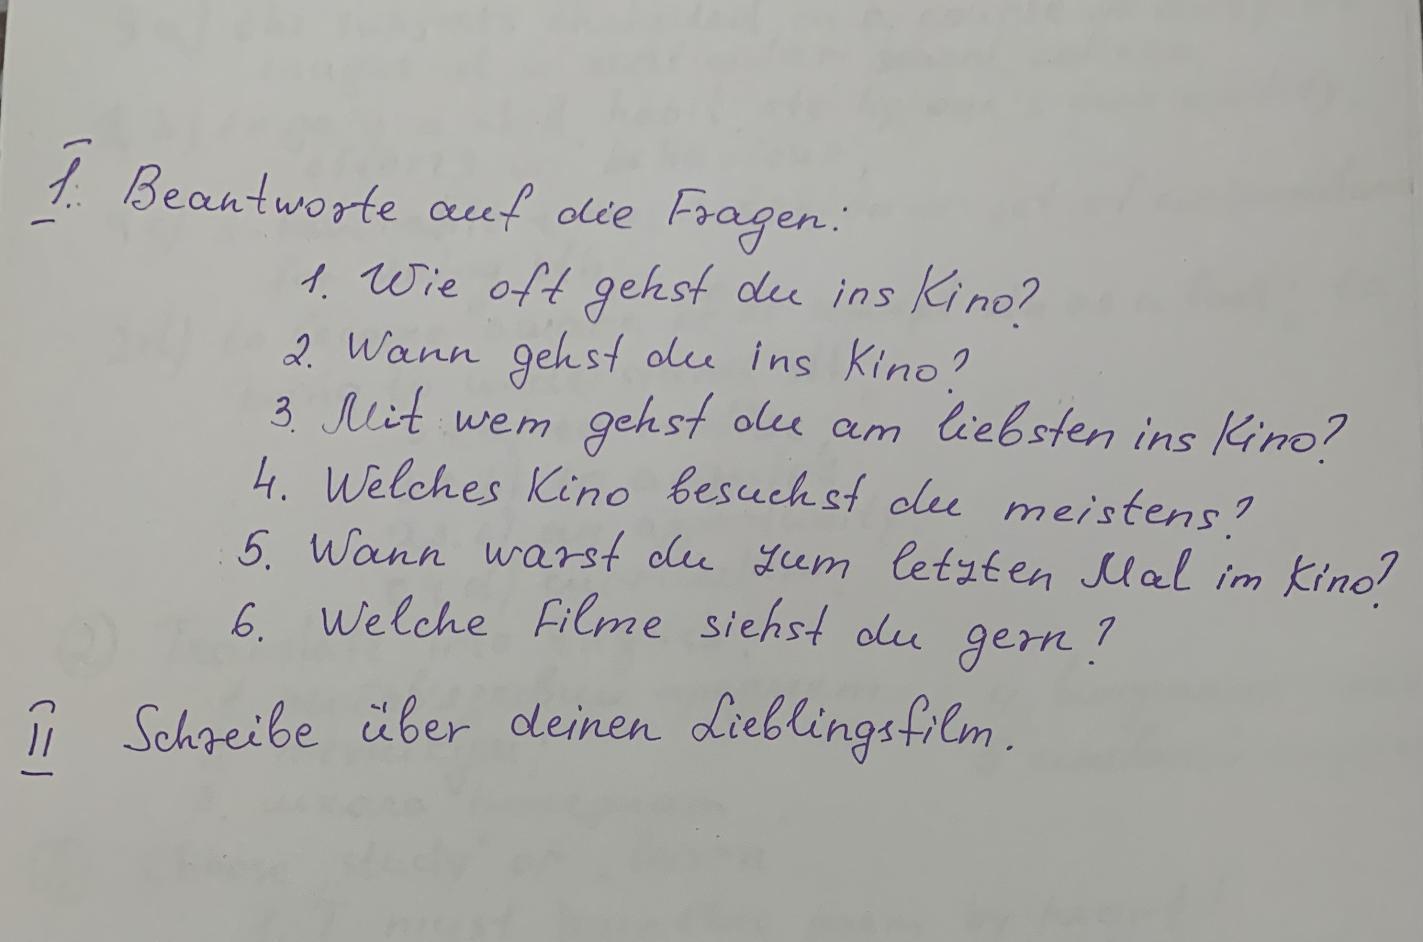 I. Beantworte auf die Fragen:
1. Wie oft gehst du ins Kino?
2. Wann gehst du ins Kino?
3. Mit wem gehst du am liebsten ins Kino?
4. Welches Kino besuchst du meistens?
5. Wann warst du zum letzten Mal im Kino?
6. Welche Filme siehst du gern?
II Schreibe über deinen Lieblingsfilm.